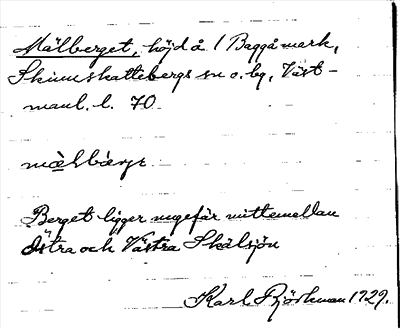 Mälberget, höjd å 1 Baggåmark,
Skinnskattebergs sn o. bg, Väst-
manl. l. 70.
Berget ligger ungefär mittemellan
Östra och Västra Skälsjön
Karl Björkman 1929.